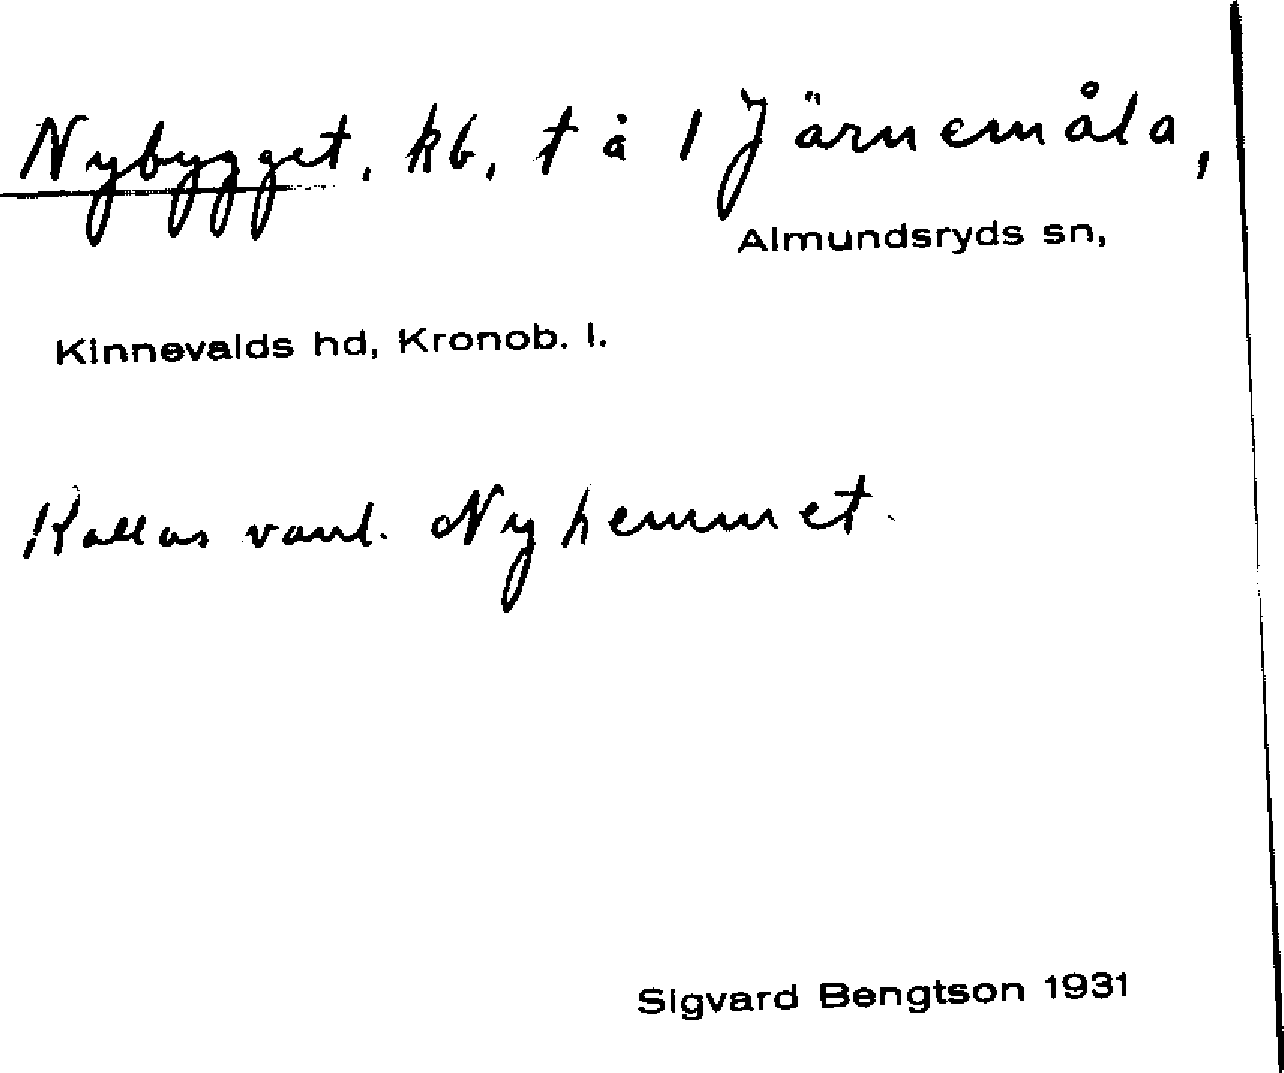 Nybygget, kb, t å 1 Järnemåla,
Almundsryds sn,
Kinnevalds hd, Kronob. l.
Kallas vanl. Nyhemmet.
Sigvard Bengtson 1931